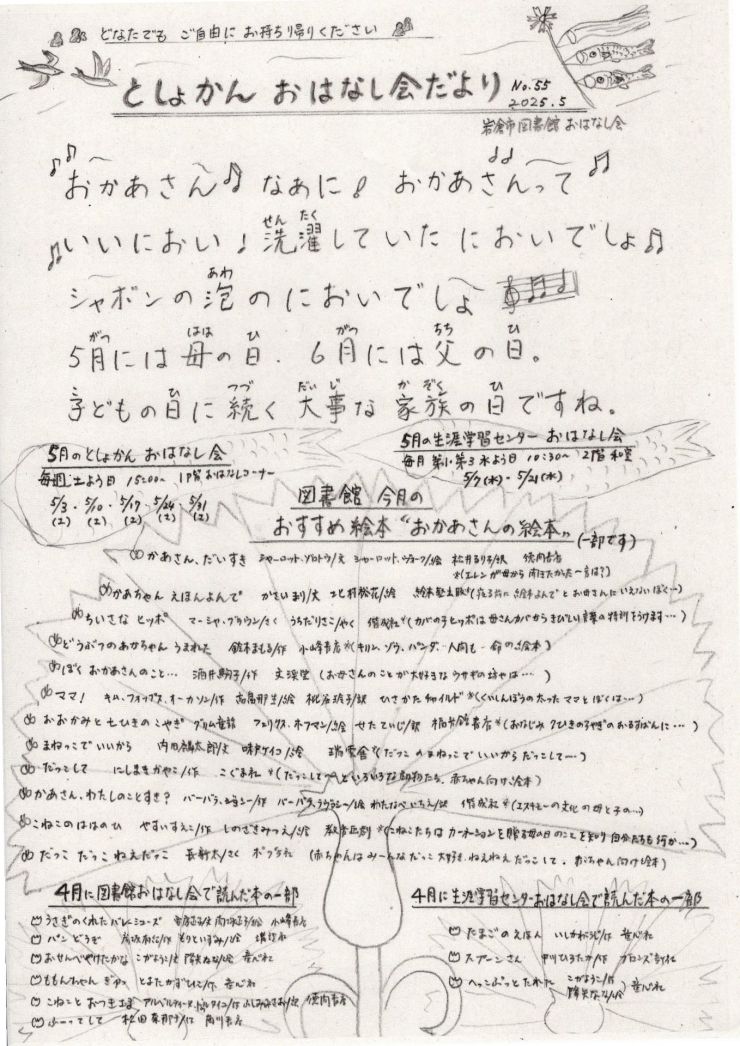 どなたでも ご自由に お持ち帰りください
としょかん おはなし会だより No.55
2025.5
岩倉市図書館 おはなし会
おかあさん なあに おかあさんって
いいにおい! 洗濯していた においでしょ
せん たく
シャボンの泡のにおいでしょ
あわ
5月には母の日、6月には父の日。
がつ はは ひ がつ ちち ひ
子どもの日に続く大事な家族の日ですね。
こ ひ つづ だいじ かぞく ひ
5月のとしょかん おはなし会
毎週土よう日 15:00〜 1階おはなしコーナー
5/3・5/10・5/17・5/24・5/31
(土) (土) (土) (土) (土)
5月の生涯学習センター おはなし会
毎月 第1・第3 水よう日 10:30〜 2階 和室
5/7(水)・5/21(水)
図書館 今月の
おすすめ絵本"おかあさんの絵本" (一部です)
かあさん、だいすき シャーロット・ゾロトウ/文 シャーロット・ヴォーク/絵 松井るり子/訳 徳間書店
かあちゃん えほんよんで かさいまり/文 えほん
ちいさな ヒッポ マーシャ・ブラウン/さく うちだりさこ/やく 偕成社 (カバの子ヒッポは母さんカバからきびしい言葉の特訓をうけます…)
どうぶつのあかちゃん うまれた 鈴木まもる/作 小峰書店 (キリン、ゾウ、パンダ…人間も… 命の絵本)
ぼく おかあさんのこと… 酒井駒子/作 文溪堂 (お母さんのことが大好きな ウサギの坊やは…)
ママ! キム・フォップス・オーカソン/作 高畠那生/絵 枇谷玲子/訳 ひさかたチャイルド (くいしんぼうの太ったママとぼくは…)
おおかみと七ひきのこやぎ グリム童話 フェリクス・ホフマン/絵 せたていじ/訳 福音館書店 (おなじみ 7ひきの子やぎのおるすばんに…)
まねっこでいいから 内田麟太郎/文 味戸ケイコ/絵 瑞雲舎 (だっこのまねっこでいいからだっこして…)
だっこして にしまきかやこ/作 こぐま社 (だっこして〜といろいろな動物たち、赤ちゃん向け絵本)
かあさん、わたしのことすき? バーバラ・ジョシー/作 バーバラ・ラヴァリー/絵 わたなべいちえ/訳 偕成社 (エスキモーの文化の母と子の…)
こねこのははのひ やすいすえこ/作 しのざきみつえ/絵 教育画劇 (こねこたちは カーネーションを贈る母の日のことを知り自分たちも何か…)
だっこ だっこ ねえだっこ 長新太/さく ポプラ社 (赤ちゃんはみ〜んなだっこ大好き、ねえねえだっこして、赤ちゃん向け絵本)
4月に図書館おはなし会で読んだ本の一部
うさぎのくれたバレエシューズ 安房直子/文 南塚直子/絵 小峰書店
パン どうぞ 彦坂有紀/作 もりといずみ/絵 講談社
おせんべやけたかな こがようこ/文 降矢なな/絵 童心社
ももんちゃん ぎゅっ とよたかずひこ/作 童心社
こねこと おつきさま アルベルティーヌ・ドゥルタイユ/作 ふしみみさを/訳 徳間書店
ふーってして 松田奈那子/作 角川書店
4月に生涯学習センターおはなし会で読んだ本の一部
たまごのえほん いしかわこうじ/作 童心社
スプーンさん 中川ひろたか/作 ブロンズ新社
へっこぷっとたれた こがようこ/作 降矢なな/絵 童心社